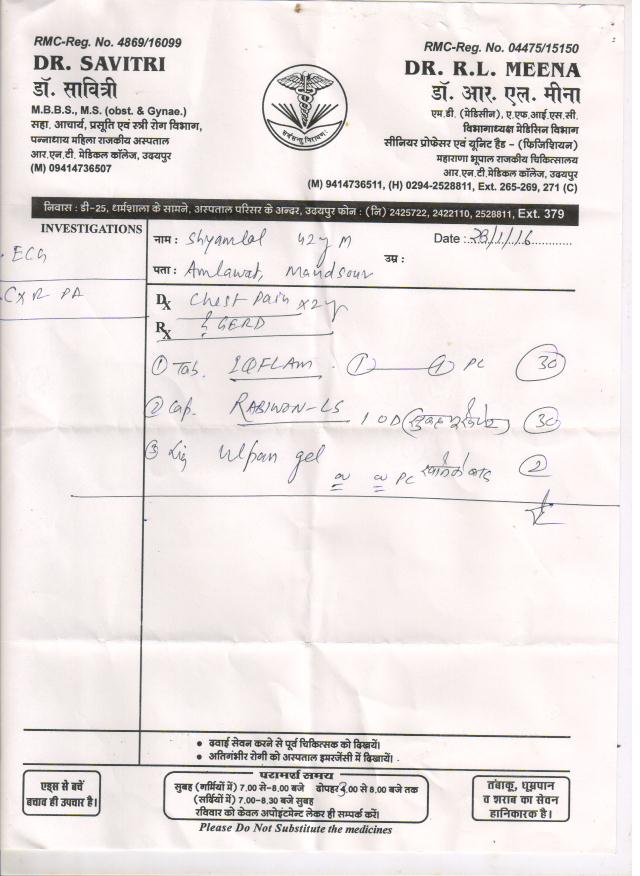 RMC-Reg. No. 4869/16099
DR. SAVITRI
डॉ. सावित्री
M.B.B.S., M.S. (obst. & Gynae.)
सहा. आचार्य, प्रसूति एवं स्त्री रोग विभाग,
पन्नाधाय महिला राजकीय अस्पताल
आर.एन.टी. मेडिकल कॉलेज, उदयपुर
(M) 09414736507
RMC-Reg. No. 04475/15150
DR. R.L. MEENA
डॉ. आर. एल. मीना
एम.डी. (मेडिसीन), ए.एफ.आई.एस.सी.
विभागाध्यक्ष मेडिसिन विभाग
सीनियर प्रोफेसर एवं यूनिट हैड - (फिजिशियन)
महाराणा भूपाल राजकीय चिकित्सालय
आर.एन.टी. मेडिकल कॉलेज, उदयपुर
(M) 9414736511, (H) 0294-2528811, Ext. 265-269, 271 (C)
निवास : डी-25, धर्मशाला के सामने, अस्पताल परिसर के अन्दर, उदयपुर फोन : (नि) 2425722, 2422110, 2528811, Ext. 379
INVESTIGATIONS
ECG
CXR PA
नाम : Shyamlal 42y M
Date : 28/1/16
उम्र :
पता : Amlawat, Mandsour
Dx Chest Pain x2y
Rx GERD
① Tab. IQFLAM ① ① PC 30
② Cap. RABIWON-LS 1 OD 30
③ Liq Ulpan gel PC खाने के बाद 2
• दवाई सेवन करने से पूर्व चिकित्सक को दिखायें।
• अतिगंभीर रोगी को अस्पताल इमरजेंसी में दिखायें।
एड्स से बचें
बचाव ही उपचार है।
परामर्श समय
सुबह (गर्मियों में) 7.00 से-8.00 बजे दोपहर 3.00 से 8.00 बजे तक
(सर्दियों में) 7.00-8.30 बजे सुबह
रविवार को केवल अपोइंटमेन्ट लेकर ही सम्पर्क करें।
Please Do Not Substitute the medicines
तंबाकू, धूम्रपान
व शराब का सेवन
हानिकारक है।